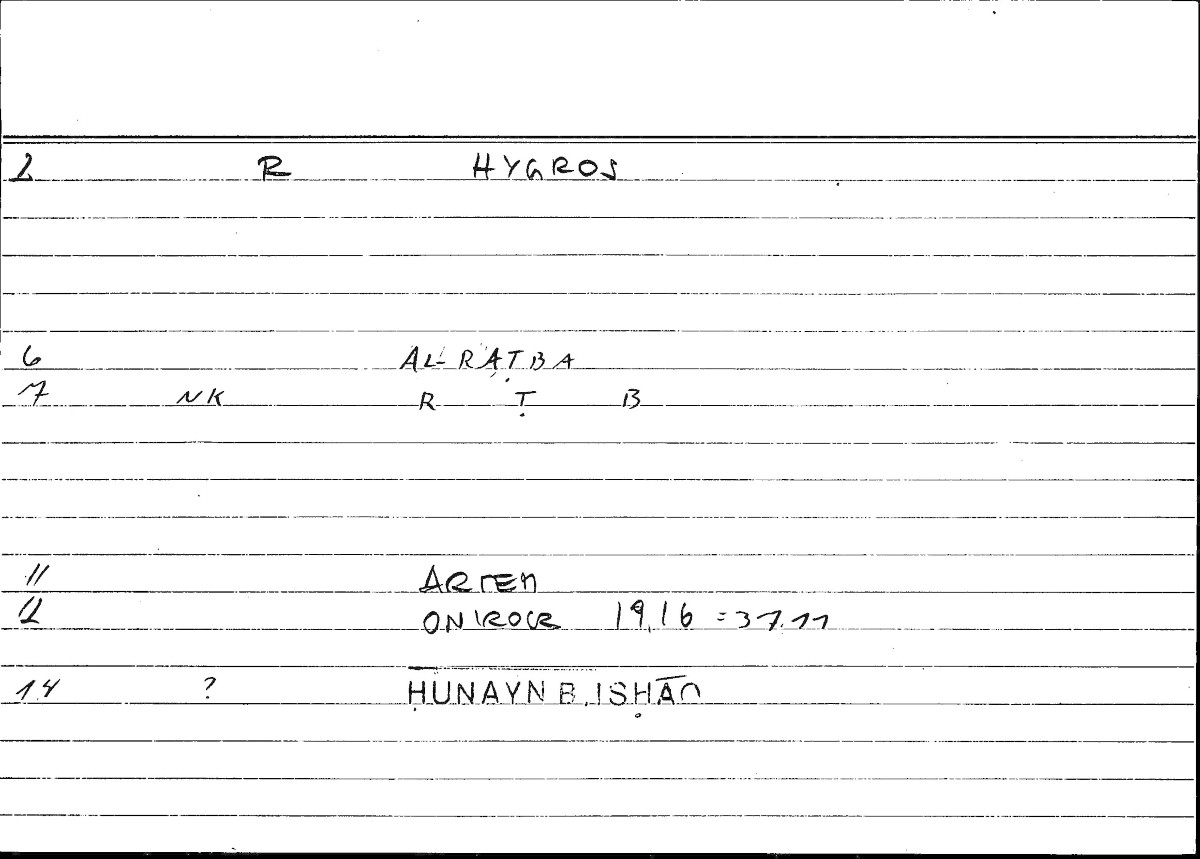 2 R HYGROS
6 AL-RAṬBA
7 NK R Ṭ B
11 ARTEM
12 ONIROCR 19,16 = 37.11
14 ? ḤUNAYN B. ISḤĀQ